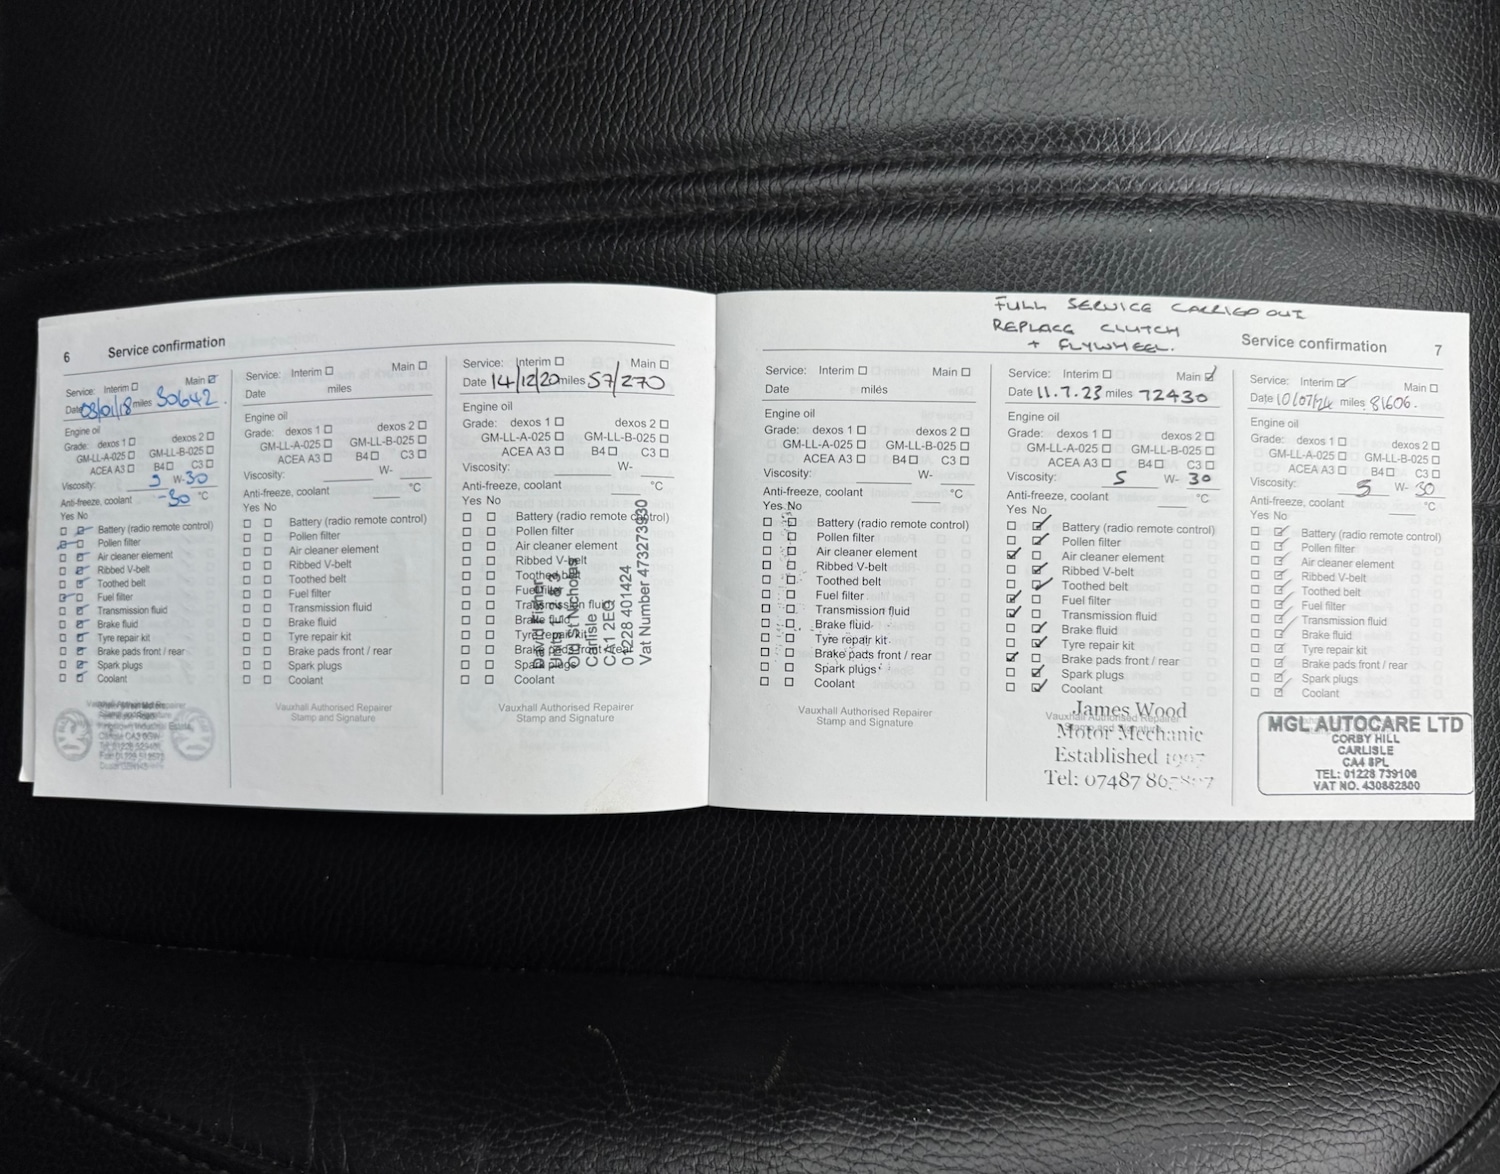 6 Service confirmation
Service: Interim ☐ Main ☑
Date 03/01/18 miles 30642
Engine oil
Grade: dexos 1 ☐ dexos 2 ☐
GM-LL-A-025 ☐ GM-LL-B-025 ☐
ACEA A3 ☐ B4 ☐ C3 ☐
Viscosity: 5 W- 30
Anti-freeze, coolant -30 °C
Yes No
Battery (radio remote control)
Pollen filter
Air cleaner element
Ribbed V-belt
Toothed belt
Fuel filter
Transmission fluid
Brake fluid
Tyre repair kit
Brake pads front / rear
Spark plugs
Coolant
Service: Interim ☐ Main ☐
Date miles
Engine oil
Grade: dexos 1 ☐ dexos 2 ☐
GM-LL-A-025 ☐ GM-LL-B-025 ☐
ACEA A3 ☐ B4 ☐ C3 ☐
Viscosity: W-
Anti-freeze, coolant °C
Yes No
Battery (radio remote control)
Pollen filter
Air cleaner element
Ribbed V-belt
Toothed belt
Fuel filter
Transmission fluid
Brake fluid
Tyre repair kit
Brake pads front / rear
Spark plugs
Coolant
Vauxhall Authorised Repairer
Stamp and Signature
Service: Interim ☐ Main ☐
Date 14/12/20 miles 57/270
Engine oil
Grade: dexos 1 ☐ dexos 2 ☐
GM-LL-A-025 ☐ GM-LL-B-025 ☐
ACEA A3 ☐ B4 ☐ C3 ☐
Viscosity: W-
Anti-freeze, coolant °C
Yes No
Battery (radio remote control)
Pollen filter
Air cleaner element
Ribbed V-belt
Toothed belt
Fuel filter
Transmission fluid
Brake fluid
Tyre repair kit
Brake pads front / rear
Spark plugs
Coolant
Vauxhall Authorised Repairer
Stamp and Signature
St Nicholas
Carlisle
CA1 2EQ
01228 401424
Vat Number 473273930
Service confirmation 7
FULL SERVICE CARRIED OUT
REPLACE CLUTCH
+ FLYWHEEL.
Service: Interim ☐ Main ☐
Date miles
Engine oil
Grade: dexos 1 ☐ dexos 2 ☐
GM-LL-A-025 ☐ GM-LL-B-025 ☐
ACEA A3 ☐ B4 ☐ C3 ☐
Viscosity: W-
Anti-freeze, coolant °C
Yes No
Battery (radio remote control)
Pollen filter
Air cleaner element
Ribbed V-belt
Toothed belt
Fuel filter
Transmission fluid
Brake fluid
Tyre repair kit
Brake pads front / rear
Spark plugs
Coolant
Vauxhall Authorised Repairer
Stamp and Signature
Service: Interim ☐ Main ☑
Date 11.7.23 miles 72430
Engine oil
Grade: dexos 1 ☐ dexos 2 ☐
GM-LL-A-025 ☐ GM-LL-B-025 ☐
ACEA A3 ☐ B4 ☐ C3 ☐
Viscosity: 5 W- 30
Anti-freeze, coolant °C
Yes No
Battery (radio remote control)
Pollen filter
Air cleaner element
Ribbed V-belt
Toothed belt
Fuel filter
Transmission fluid
Brake fluid
Tyre repair kit
Brake pads front / rear
Spark plugs
Coolant
Vauxhall Authorised Repairer
James Wood
Motor Mechanic
Established
Tel: 07487
Service: Interim ☑ Main ☐
Date 10/07/24 miles 81606.
Engine oil
Grade: dexos 1 ☐ dexos 2 ☐
GM-LL-A-025 ☐ GM-LL-B-025 ☐
ACEA A3 ☐ B4 ☐ C3 ☐
Viscosity: 5 W- 30
Anti-freeze, coolant °C
Yes No
Battery (radio remote control)
Pollen filter
Air cleaner element
Ribbed V-belt
Toothed belt
Fuel filter
Transmission fluid
Brake fluid
Tyre repair kit
Brake pads front / rear
Spark plugs
Coolant
MGL AUTOCARE LTD
CORBY HILL
CARLISLE
CA4 8PL
TEL: 01228 739106
VAT NO. 430882800